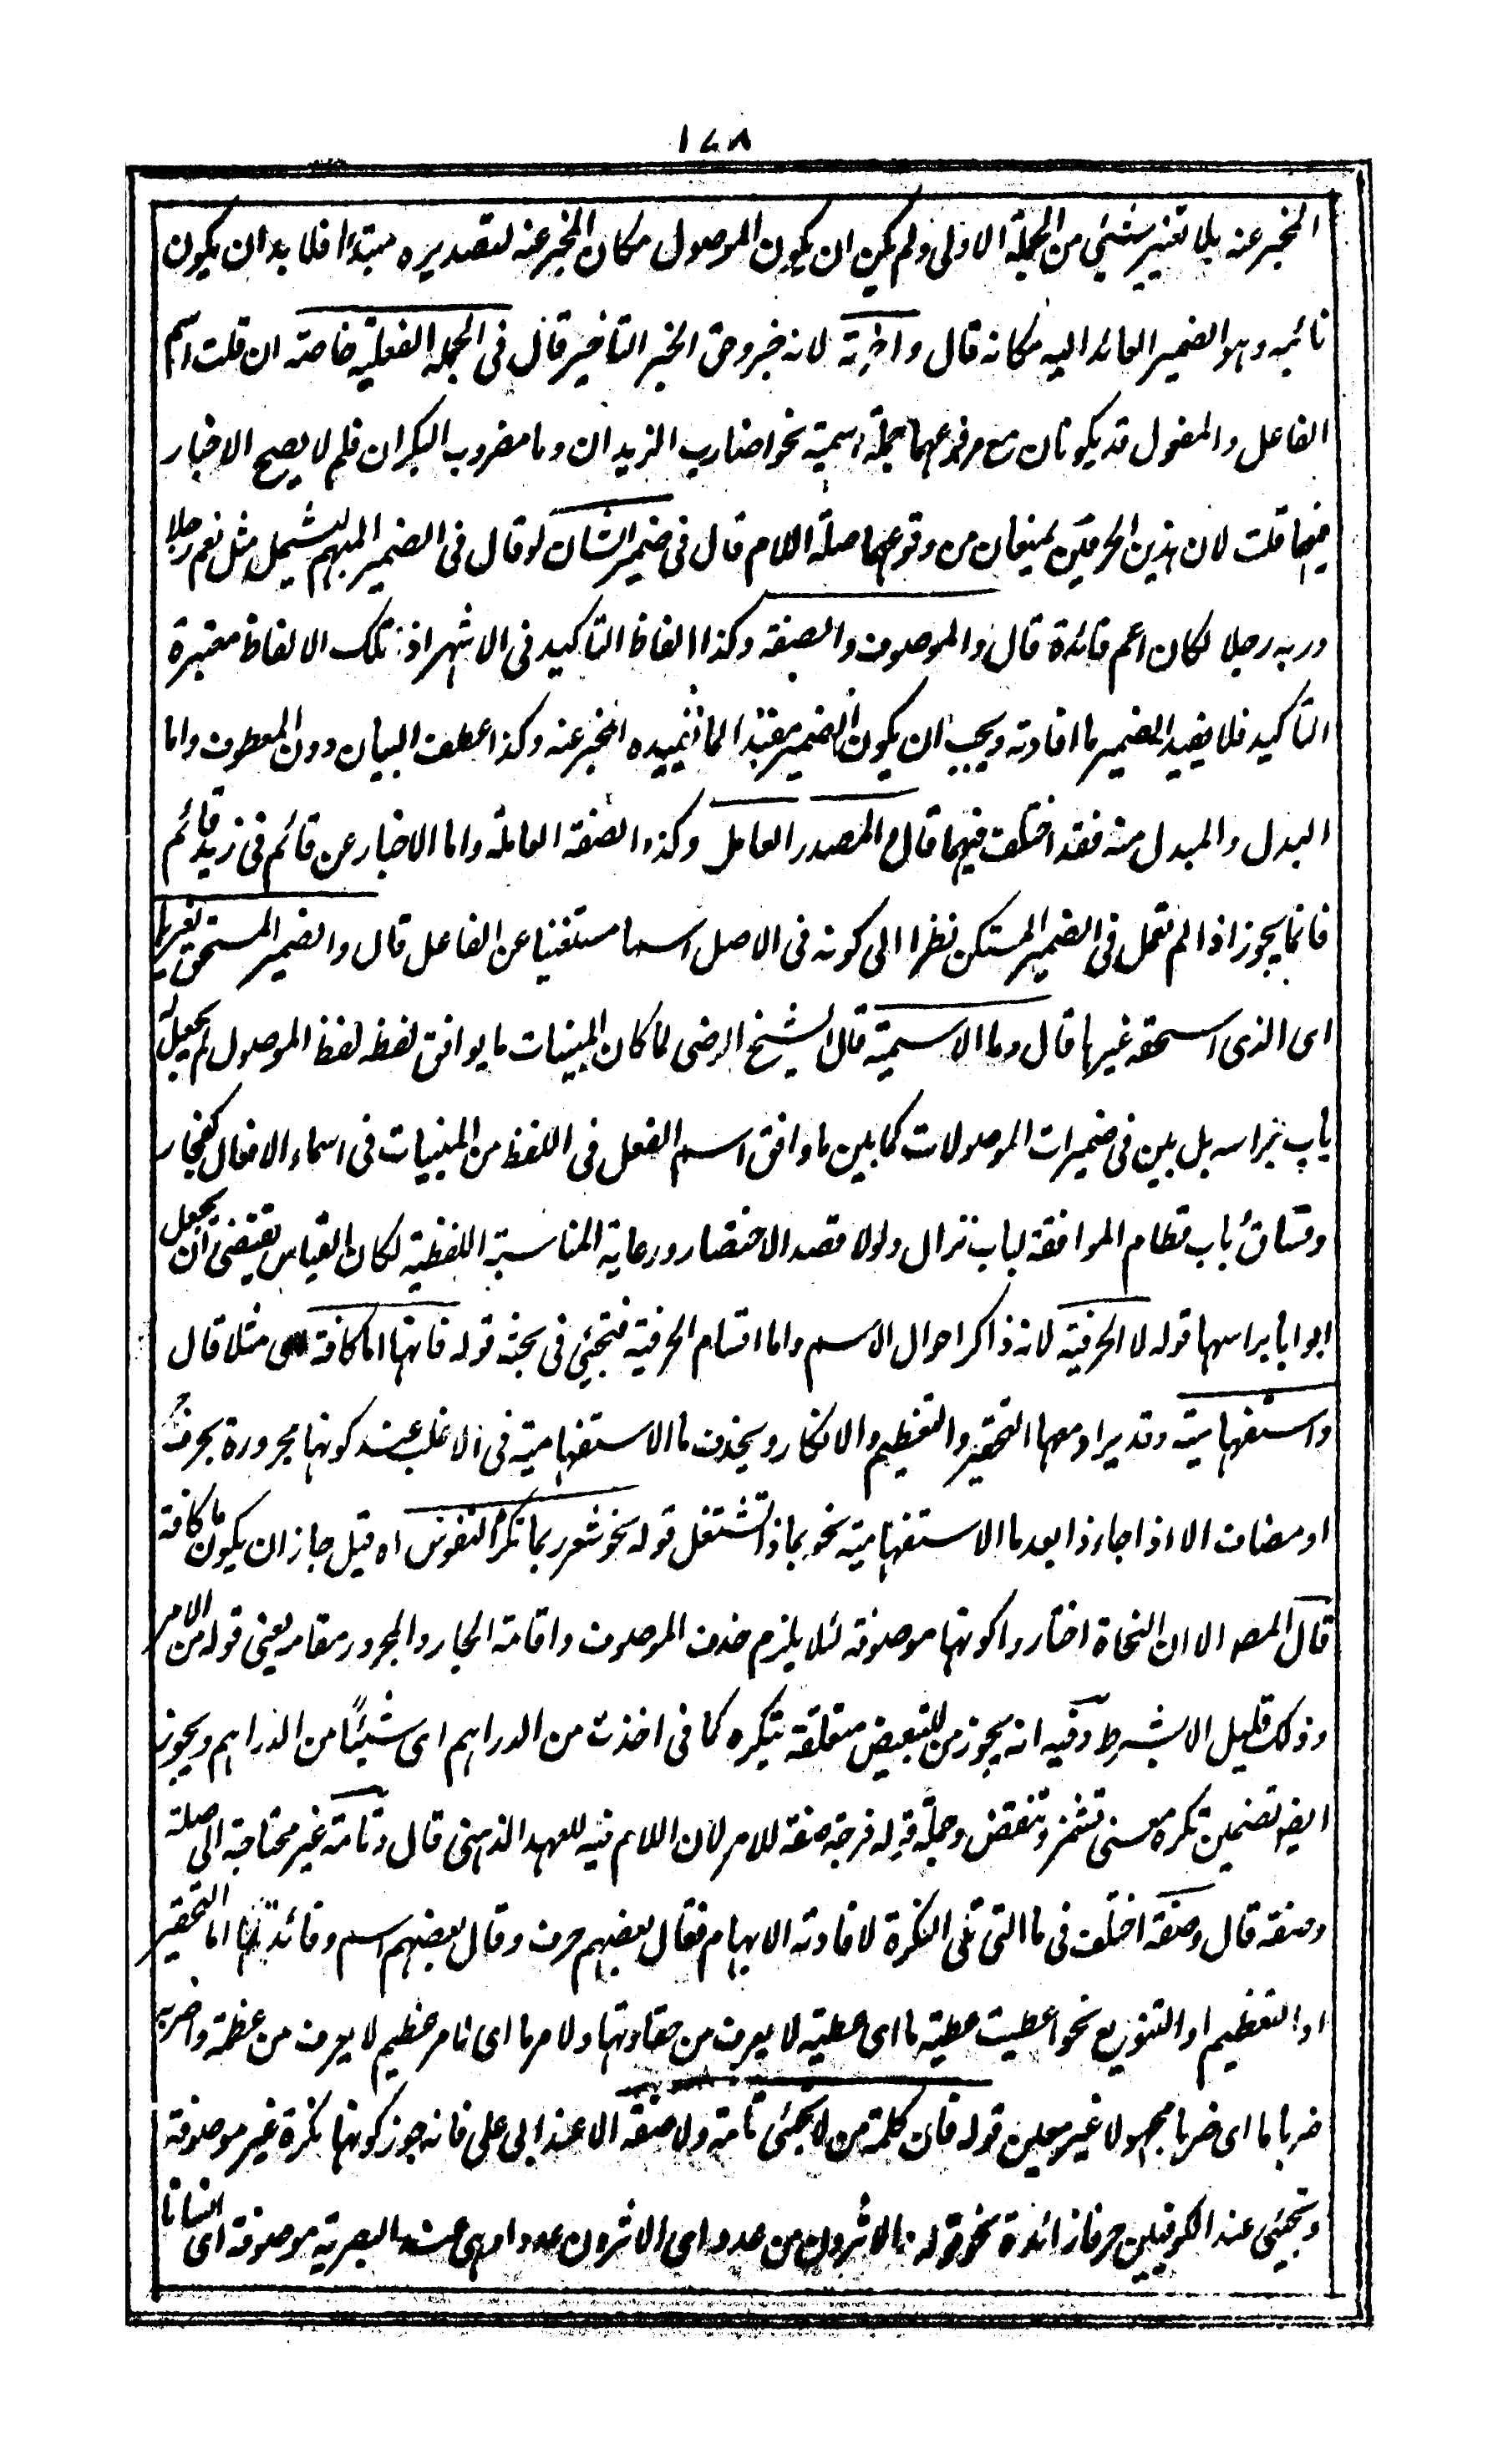 ١٤٨
المخبر عنه بلا تغيير شئى من الجملة الاولى ولم يكن ان يكون الموصول مكان المخبر عنه لتصديره مبتدأ فلا بد ان يكون
نائبه وهو الضمير العائد اليه مكانه قال واخرته لانه خبر وحق الخبر التاخير قال فى الجملة الفعلية خاصة ان قلت اسم
الفاعل والمفعول قد يكونان مع مرفوعهما جملة اسمية نحو اضارب الزيدان وما مضروب البكران فلم لا يصح الاخبار
فيهما قلت لان هذين الحرفين يمنعان من وقوعهما صلة اللام قال فى ضمير الشان لو قال فى الضمير المبهم ليشمل مثل نعم رجلا
وربه رجلا لكان اعم فائدة قال والموصوف والصفة وكذا الفاظ التاكيد فى الاشهر اذ تلك الالفاظ معتبرة
التأكيد فلا يفيد الضمير ما افادته ويجب ان يكون الضمير مفيدا لما يفيده المخبر عنه وكذا عطف البيان دون المعطوف واما
البدل والمبدل منه فقد اختلف فيهما قال المصدر العامل وكذا الصفة العاملة واما الاخبار عن قائم فى زيد قائم
فانما يجوز اذا لم تعمل فى الضمير المستكن نظرا الى كونه فى الاصل اسما مستغنيا عن الفاعل قال والضمير المستحق لغيرها
اى الذى استحقه غيرها قال وما الاسمية قال الشيخ الرضى لما كان المبنيات ما يوافق لفظه لفظ الموصول لم يجعل له
باب برأسه بل بين فى ضميرات الموصولات كما بين ما وافق اسم الفعل فى اللفظ من المبنيات فى اسماء الافعال كفجار
وفساق باب قطام الموافقة لباب نزال ولولا قصد الاختصار ورعاية المناسبة اللفظية لكان القياس يقتضى ان يجعل
ابوابا براسها قوله لا الحرفية لانه ذاكر احوال الاسم واما اقسام الحرفية فتجئى فى بحثه قوله فانها اما كافة مثلا قال
واستفهامية وقد يراد معها التحقير والتعظيم والانكار ويحذف ما الاستفهامية فى الاغلب عند كونها مجرورة بحرف
او مضاف الا اذا جاء ذا بعد ما الاستفهامية نحو بماذا تشتغل قوله نحو شعر ربما تكره النفوس اه قيل جاز ان يكون ما كافة
قال المصـ الا ان النحاة اختاروا كونها موصوفة لئلا يلزم حذف الموصوف واقامة الجار والمجرور مقامه يعنى قوله من الامر
وذلك قليل الا بشرط وفيه انه يجوز من للتبعيض متعلقة بتكره كما فى اخذت من الدراهم اى شيئًا من الدراهم ويجوز
ايضـ تضمين تكره معنى تشمئز وتنقبض وجملة قوله فرجة صفة للامر لان اللام فيه للعهد الذهنى قال وتامة غير محتاجة الى صلة
وصفة قال وصفة اختلف فى ما التى تلى النكرة لافادته الابهام فقال بعضهم حرف وقال بعضهم اسم وفائدتها اما التحقير
او التعظيم او التنويع نحو اعطيت عطية ما اى عطية لا يعرف من حقارتها ولامر ما اى لامر عظيم لا يعرف من عظمة واضربه
ضربا ما اى ضربا مجهولا غير معين قوله فان كلمة من لا تجئى تامة ولا صفة الا عند ابى على فانه جوز كونها نكرة غير موصوفة
وتجئى عند الكوفيين حرفا زائدة نحو قوله الاثرون من عددا اى الاثرون عددا وهى عند البصرية موصوفة اى انسانا